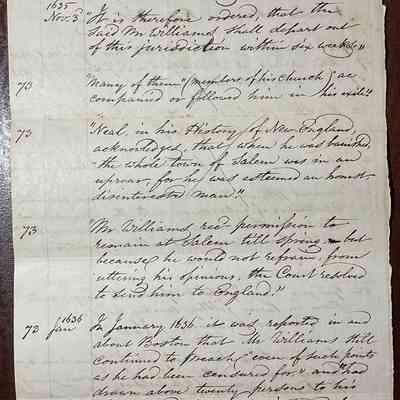 1635
Nov. 3 "It is therefore ordered, that the
said Mr Williams shall depart out
of this jurisdiction within six weeks"
73 "Many of them (members of his church) ac
companied or followed him in his exile"
73 "Neal, in his History of New England
acknowledges, that when he was banished,
"the whole town of Salem was in an
uproar, for he was esteemed an honest
disinterested man."
73 "Mr Williams recd permission to
remain at Salem till spring, but
because he would not refrain from
uttering his opinions, the Court resolved
to send him to England."
73 Jan 1636 In January 1636 it was reported in and
about Boston that Mr Williams still
continued to preach "even of such points
as he had been censured for" and "had
drawn above twenty persons to his